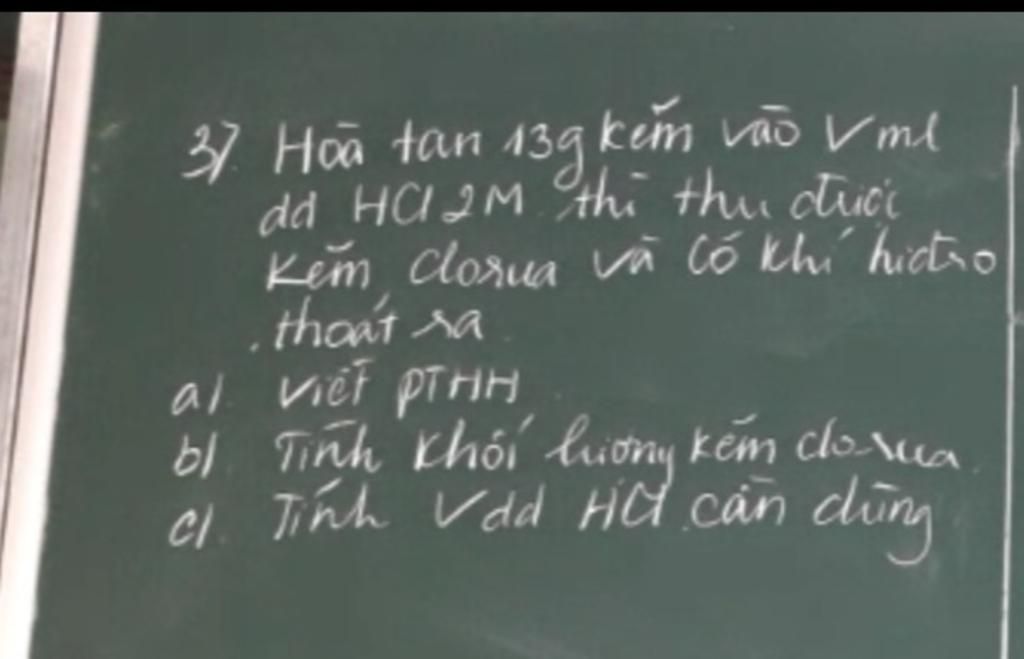 3/. Hòa tan 13g kẽm vào V ml
dd HCl 2M thì thu được
kẽm clorua và có khí hiđro
thoát ra.
a/. Viết PTHH
b/ Tính khối lượng kẽm clorua.
c/. Tính Vdd HCl cần dùng